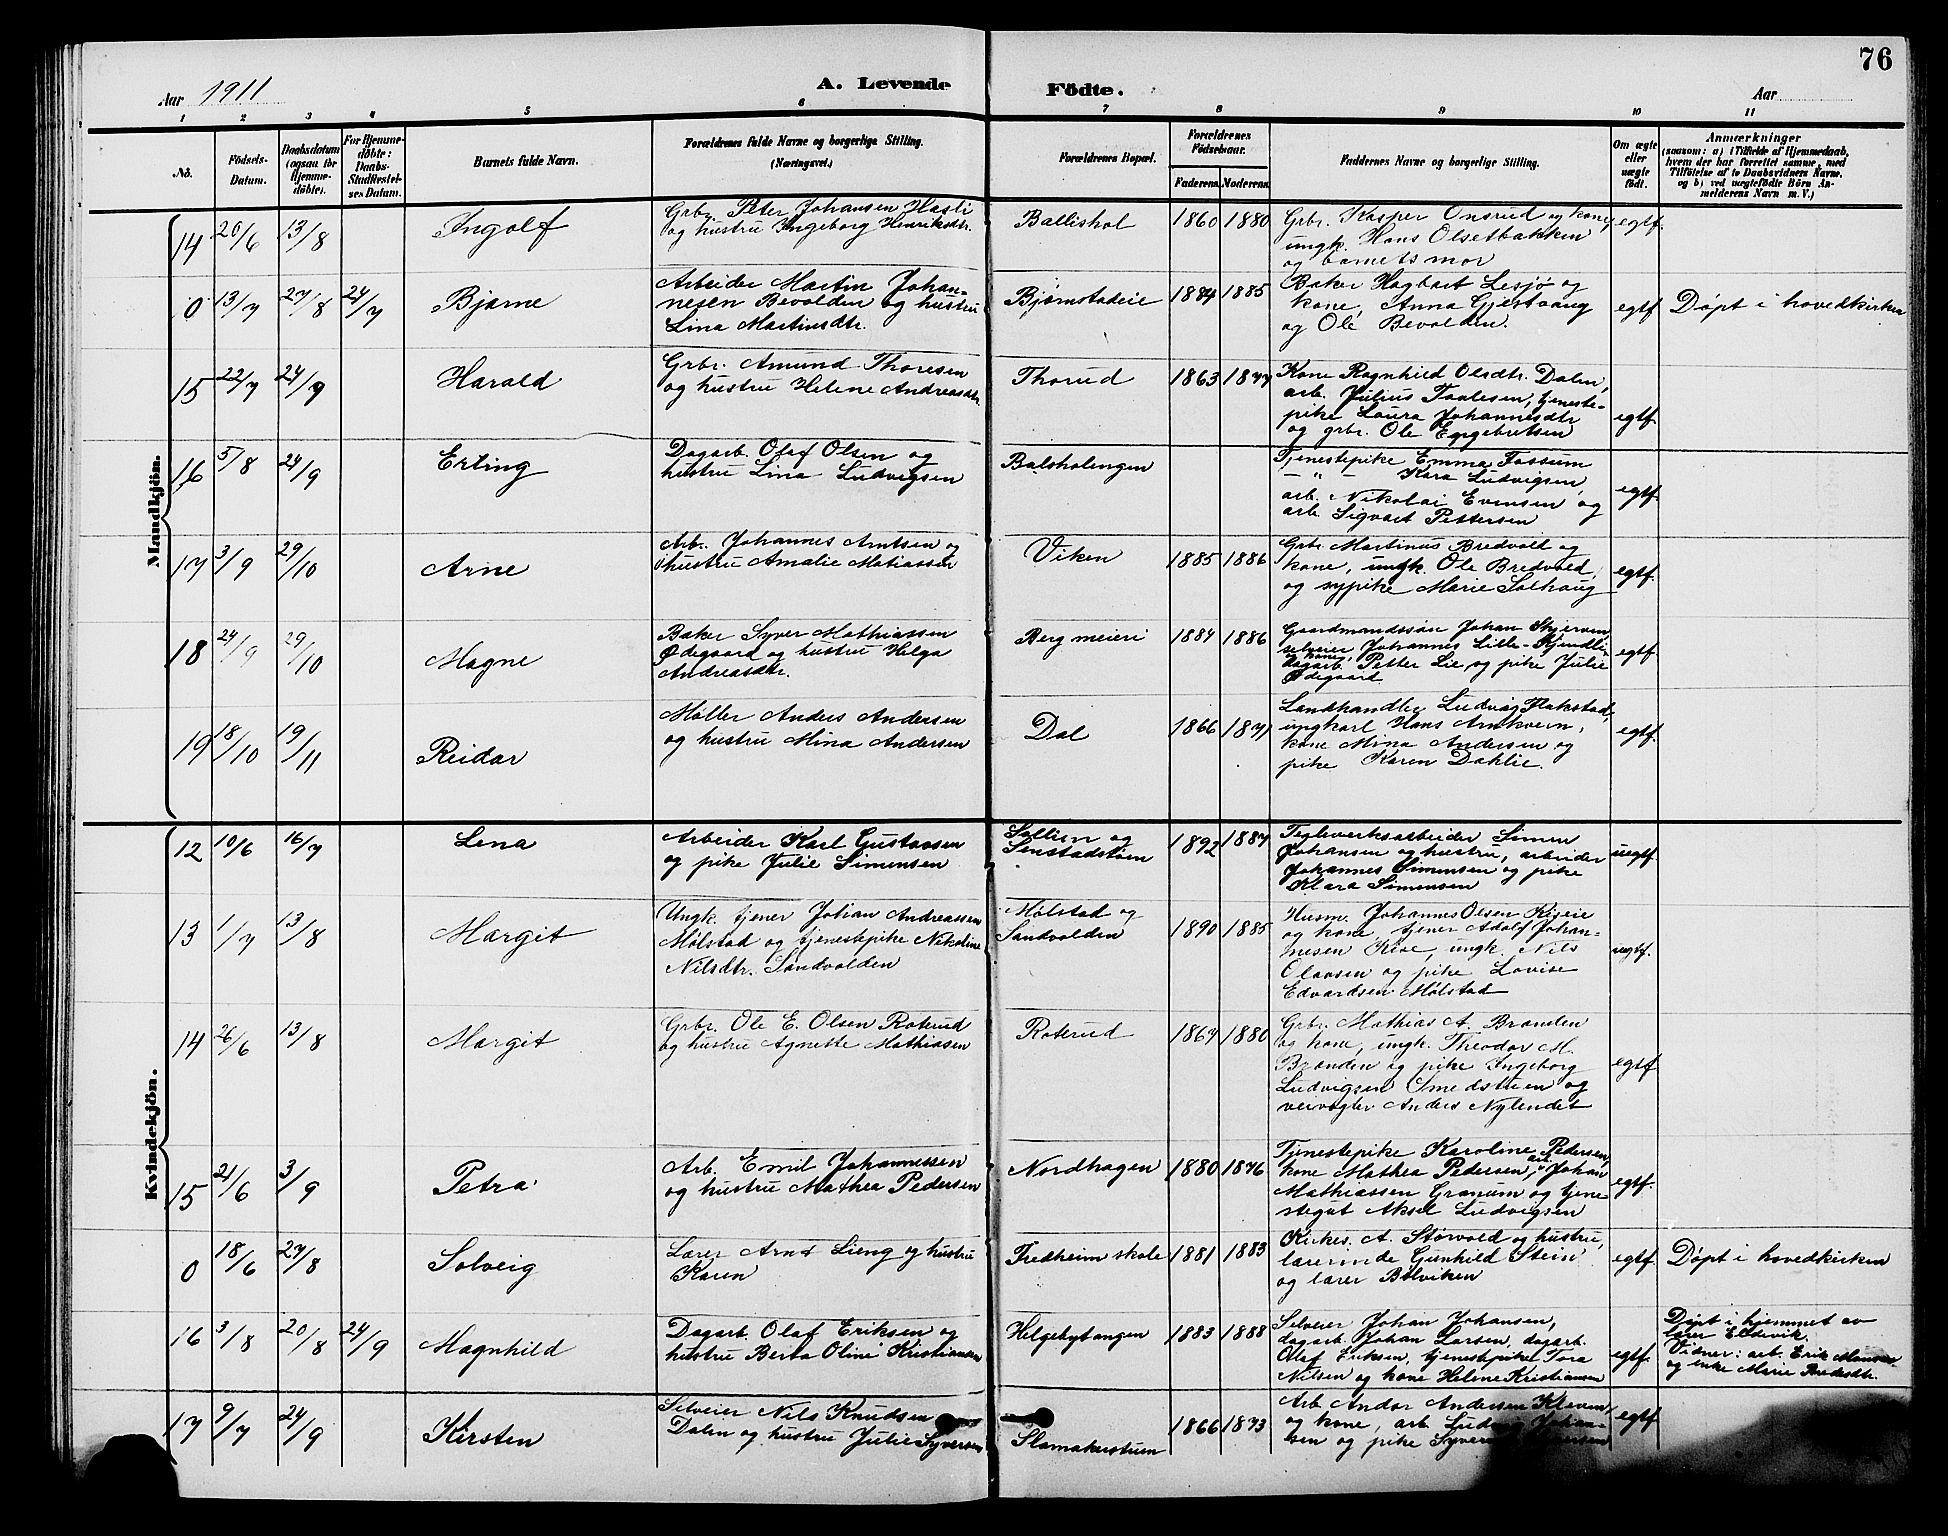 76
Aar 1911
A. Levende Födte.
Aar
1 2 3 4 5 6 7 8 9 10 11
No.
Födsels-Datum.
Daabsdatum (ogsaa for Hjemmedöbte).
For Hjemmedöbte: Daabs-Stadfæstelses Datum.
Barnets fulde Navn.
Forældrenes fulde Navne og borgerlige Stilling. (Næringsvei.)
Forældrenes Bopæl.
Forældrenes Födselsaar.
Faderens. Moderens.
Faddernes Navne og borgerlige Stilling.
Om ægte eller uægte födt.
Anmærkninger
(saasom: a) i Tilfælde af Hjemmedaab, hvem der har forrettet samme, med Tilföielse af to Daabsvidners Navne. og b) ved uægtefödte Börn Anmelderens Navn m. V.)
Mandkjön.
14 20/6 13/8 Ingolf
Grbr. Peter Johansen Hasli
og hustru Ingeborg Henriksdtr.
Ballishol 1860 1880
Grbr. Kasper Onsrud og kone,
ungk. Hans Olsetbakken
og barnets mor
egtf.
0 13/7 27/8 24/7 Bjarne
Arbeider Martin Johan-
nesen Bevolden og hustru
Lina Martinsdtr.
Bjørnstadeie 1884 1885
Baker Hagbart Lesjø og
kone, Anna Gjestvang
og Ole Bevolden.
egtf Døpt i hovedkirken
15 22/7 24/9 Harald
Grbr. Amund Thoresen
og hustru Helene Andreasdtr.
Thorud 1863 1877
Kone Ragnhild Olsdtr. Dalen,
arb. Julius Paulesen, tjeneste-
pike Laura Johannesdtr
og grbr. Ole Engebretsen
egtf.
16 5/8 24/9 Erling
Dagarb. Olaf Olsen og
hustru Lina Ludvigsen
Balsholengen
Tjenestepike Emma Fossum
- " - Kara Ludvigsen,
arb. Nikolai Evensen og
arb. Sigvart Pettersen
egtf.
17 3/9 29/10 Arne
Arb. Johannes Arntsen og
hustru Amalie Matiassen
Viken 1885 1886
Grbr Martinus Bredvold og
kone, ungk. Ole Bredvold,
og sypike Marie Solhaug
egtf.
18 24/9 29/10 Magne
Baker Syver Mathiassen
Ødegaard og hustru Helga
Andreasdtr.
Berg meieri 1884 1886
Gaardmandssøn Johan Skjerven,
selveier Johannes Lille-Kjindli
og kone,
dagarb. Petter Lie og pike Julie
Ødegaard.
egtf.
19 18/10 19/11 Reidar
Møller Anders Andersen
og hustru Mina Andersen
Dal 1866 1871
Landhandler Ludvig Flakstad,
ungkarl Hans Arnkvern,
kone Mina Andersen og
pike Karen Dahlie.
egtf.
Kvindekjön.
12 10/6 16/7 Lena
Arbeider Karl Gustavsen
og pike Julie Simensen
Sollien og
Sinstadstuen 1892 1887
Teglverksarbeider Simen
Johansen og hustru, arbeider
Johannes Simensen og pike
Klara Simensen
uegtf.
13 1/7 13/8 Margit
Ungk. tjener Johan Andreassen
Mølstad og tjenestepike Nikoline
Nilsdtr. Sandvolden
Mølstad og
Sandvolden 1890 1885
Husm. Johannes Olsen Kiseie
og kone, tjener Adolf Johan-
nesen Kise, ungk. Nils
Olavsen og pike Lovise
Edvardsen Mølstad
uegtf.
14 26/6 13/8 Margit
Grbr. Ole E. Olsen Roterud
og hustru Agnette Mathiasen
Roterud 1867 1880
Grbr. Mathias A. Branden
og kone, ungk. Theodor M.
Branden og pike Ingeborg
Ludvigsen Smedstuen og
veivogter Anders Nylendet
egtf
15 21/6 3/9 Petra
Arb. Emil Johannessen
og hustru Mathea Pedersen
Nordhagen 1880 1876
Tjenestepike Karoline Pedersen,
kone Mathea Pedersen, arb. Johan
Mathiassen Granum og tjene-
stegut Aksel Ludvigsen
egtf.
0 18/6 27/8 Solveig
Lærer Arnt Lieng og hustru
Karen
Fredheim skole 1881 1883
Kirkes. A. Størvold og hustru,
lærerinde Gunhild Stein
og lærer Bolviken
egtf. Døpt i hovedkirken
16 3/8 20/8 24/9 Magnhild
Dagarb. Olaf Eriksen og
hustru Berta Oline Kristiansen
Helgebytangen 1883 1888
Selveier Johan Johansen,
dagarb. Johan Larsen, dagarb.
Olaf Eriksen, tjenestepike Tora
Nilsen og kone Helene Kristiansen
egtf.
Døpt i hjemmet av
lærer Eldevik.
Vidner: arb. Erik
og enke Marie
17 9/7 24/9 Kirsten
Selveier Nils Knudsen
Dalen og hustru Julie Syversen
Slamakustuen 1866 1873
Arb. Andor Andersen Kleven
og kone, arb Ludvig Johan-
sen og pike
egtf